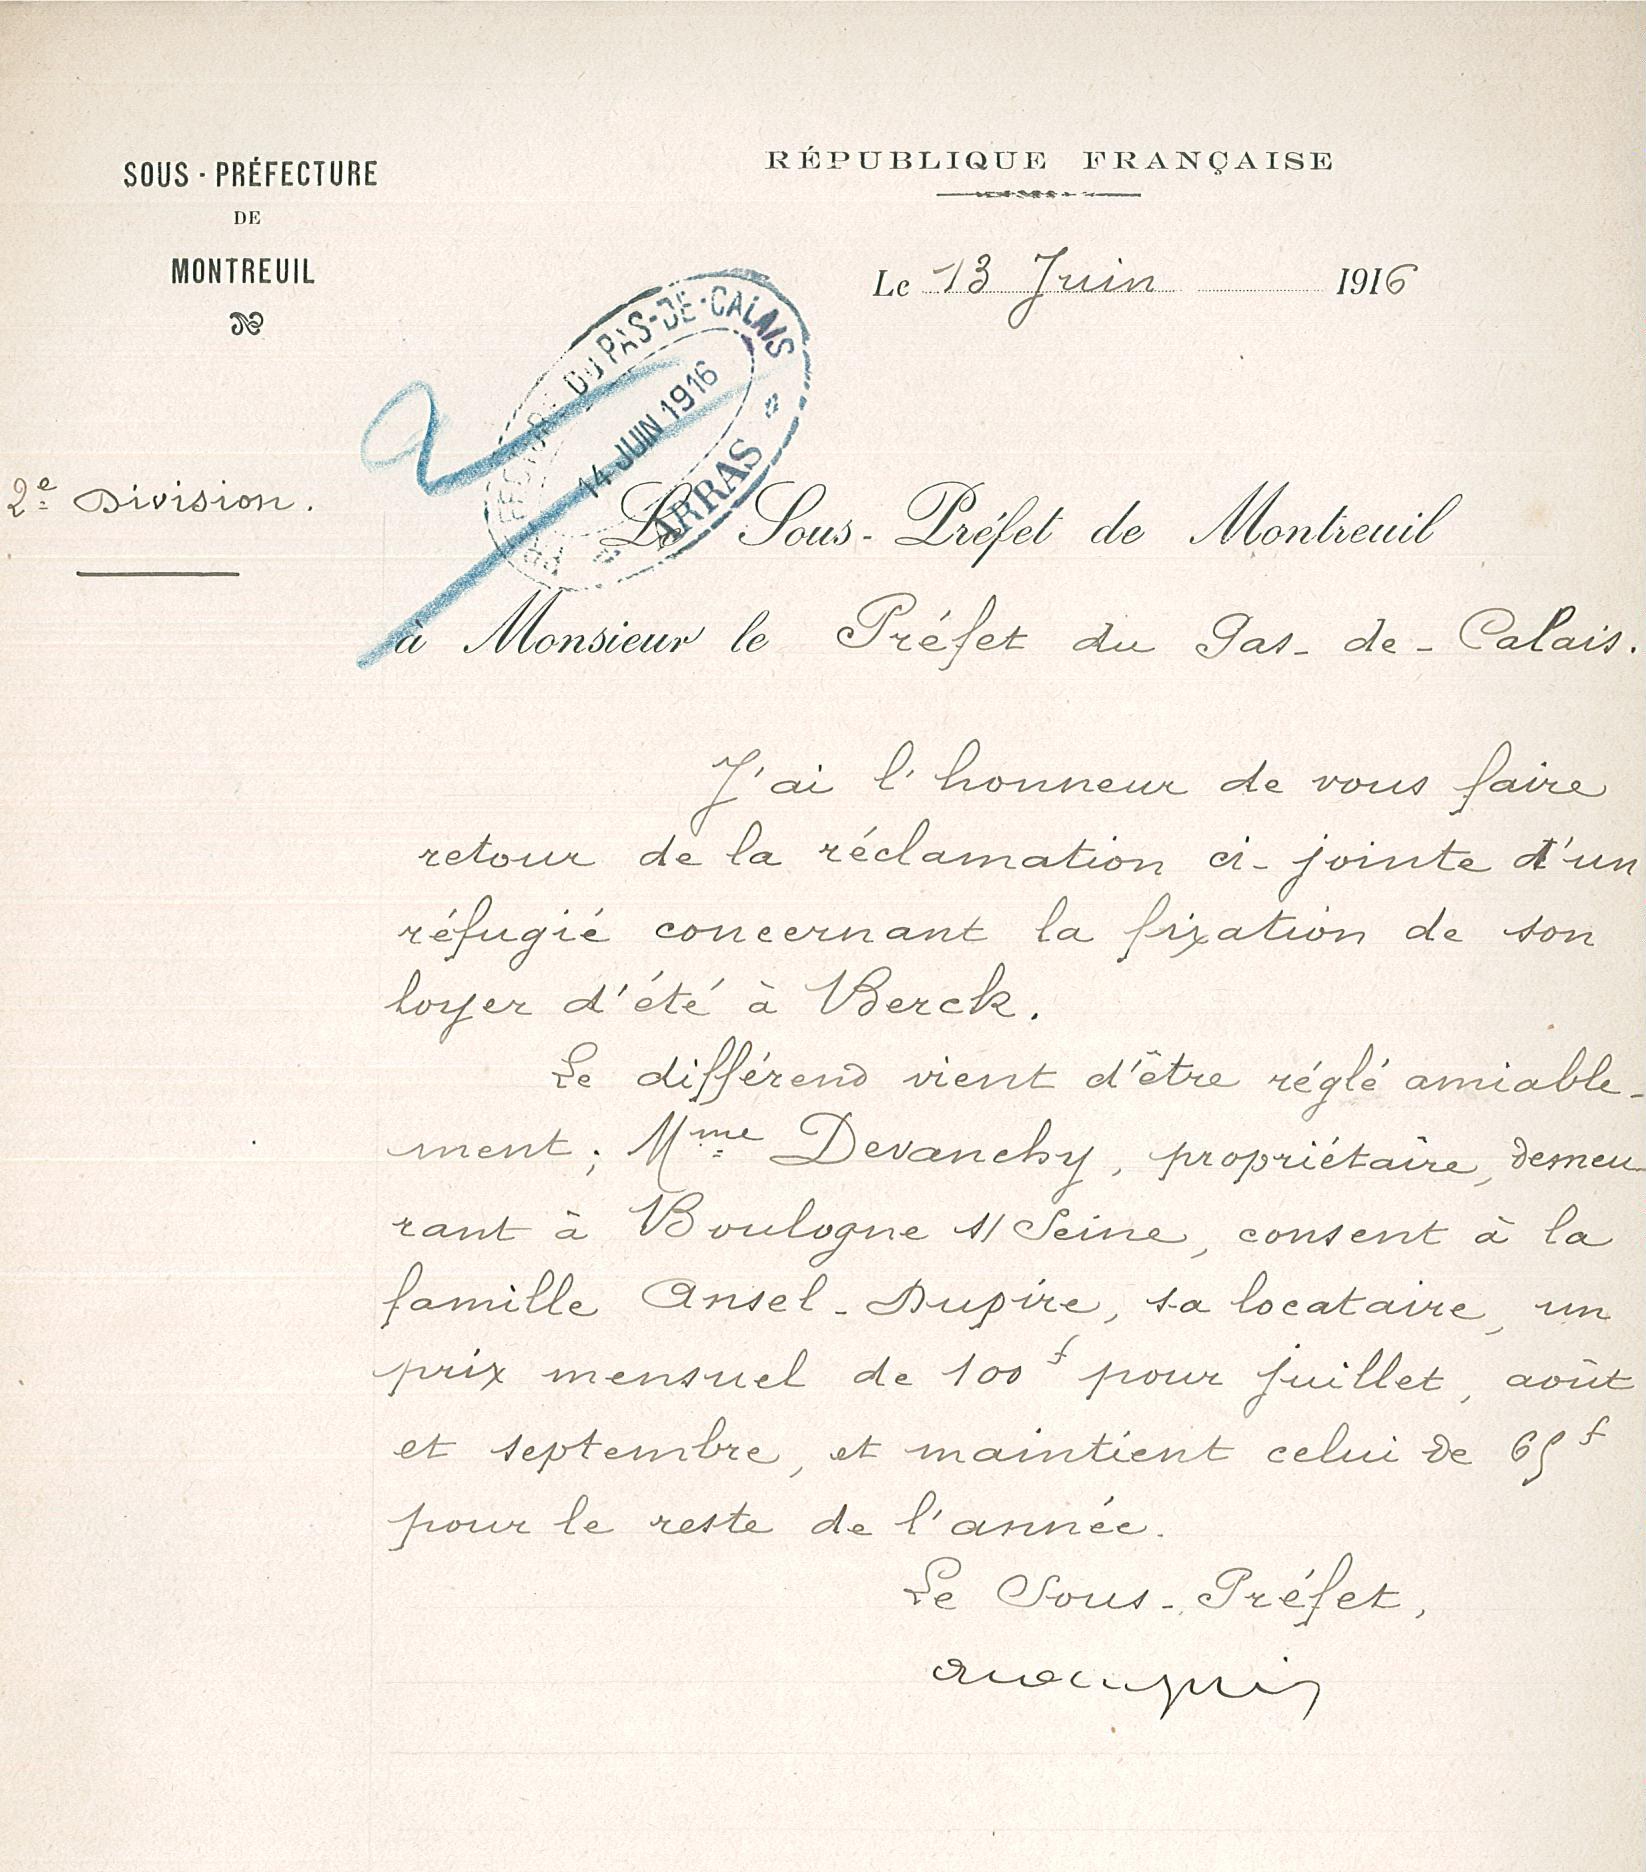 SOUS-PRÉFECTURE
DE
MONTREUIL
RÉPUBLIQUE FRANÇAISE
Le 13 Juin 1916
PRÉFECTURE DU PAS-DE-CALAIS
14 JUIN 1916
ARRAS
2e Division.
Le Sous-Préfet de Montreuil
à Monsieur le Préfet du Pas-de-Calais.
J'ai l'honneur de vous faire
retour de la réclamation ci-jointe d'un
réfugié concernant la fixation de son
loyer d'été à Berck.
Le différend vient d'être réglé amiable-
ment; Mme Devanchy, propriétaire, demeu-
rant à Boulogne s/Seine, consent à la
famille Ansel-Dupire, sa locataire, un
prix mensuel de 100f pour juillet, août
et septembre, et maintient celui de 65f
pour le reste de l'année.
Le Sous-Préfet,